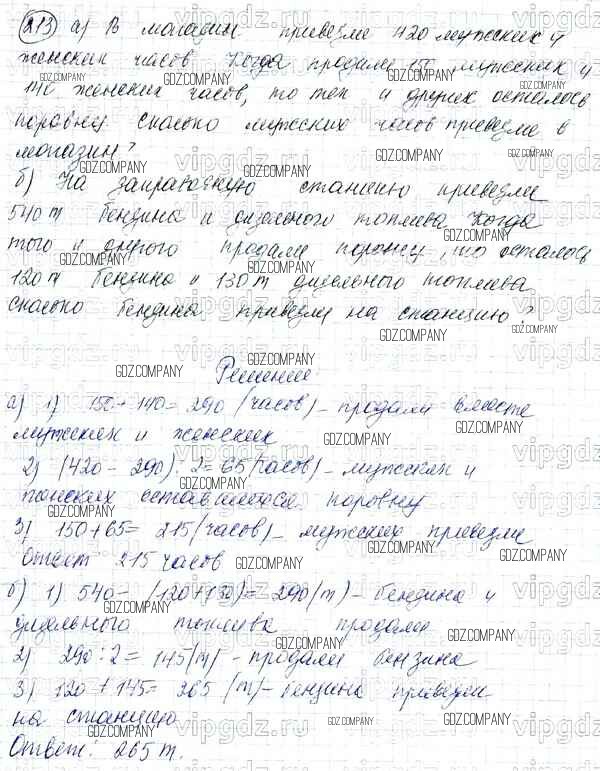 213 а) В магазин привезли 420 мужских и
женских часов Когда продали 150 мужских и
140 женских часов, то тех и других осталось
поровну Сколько мужских часов привезли в
магазин?
б) На заправочную станцию привезли
540 т бензина и дизельного топлива Когда
того и другого продали поровну, то осталось
120 т бензина и 130 т дизельного топлива
сколько бензина привезли на станцию?
Решение
а) 1) 150 + 140 = 290 (часов) – продали вместе
мужских и женских
2) (420 – 290) : 2 = 65 (часов) – мужских и
женских оставшихся поровну
3) 150 + 65 = 215 (часов) – мужских привезли
Ответ 215 часов
б) 1) 540 – (120 + 130) = 290 (т) – бензина и
дизельного топлива продали
2) 290 : 2 = 145 (т) – продали бензина
3) 120 + 145 = 265 (т) – бензина привезли
на станцию
Ответ: 265 т.